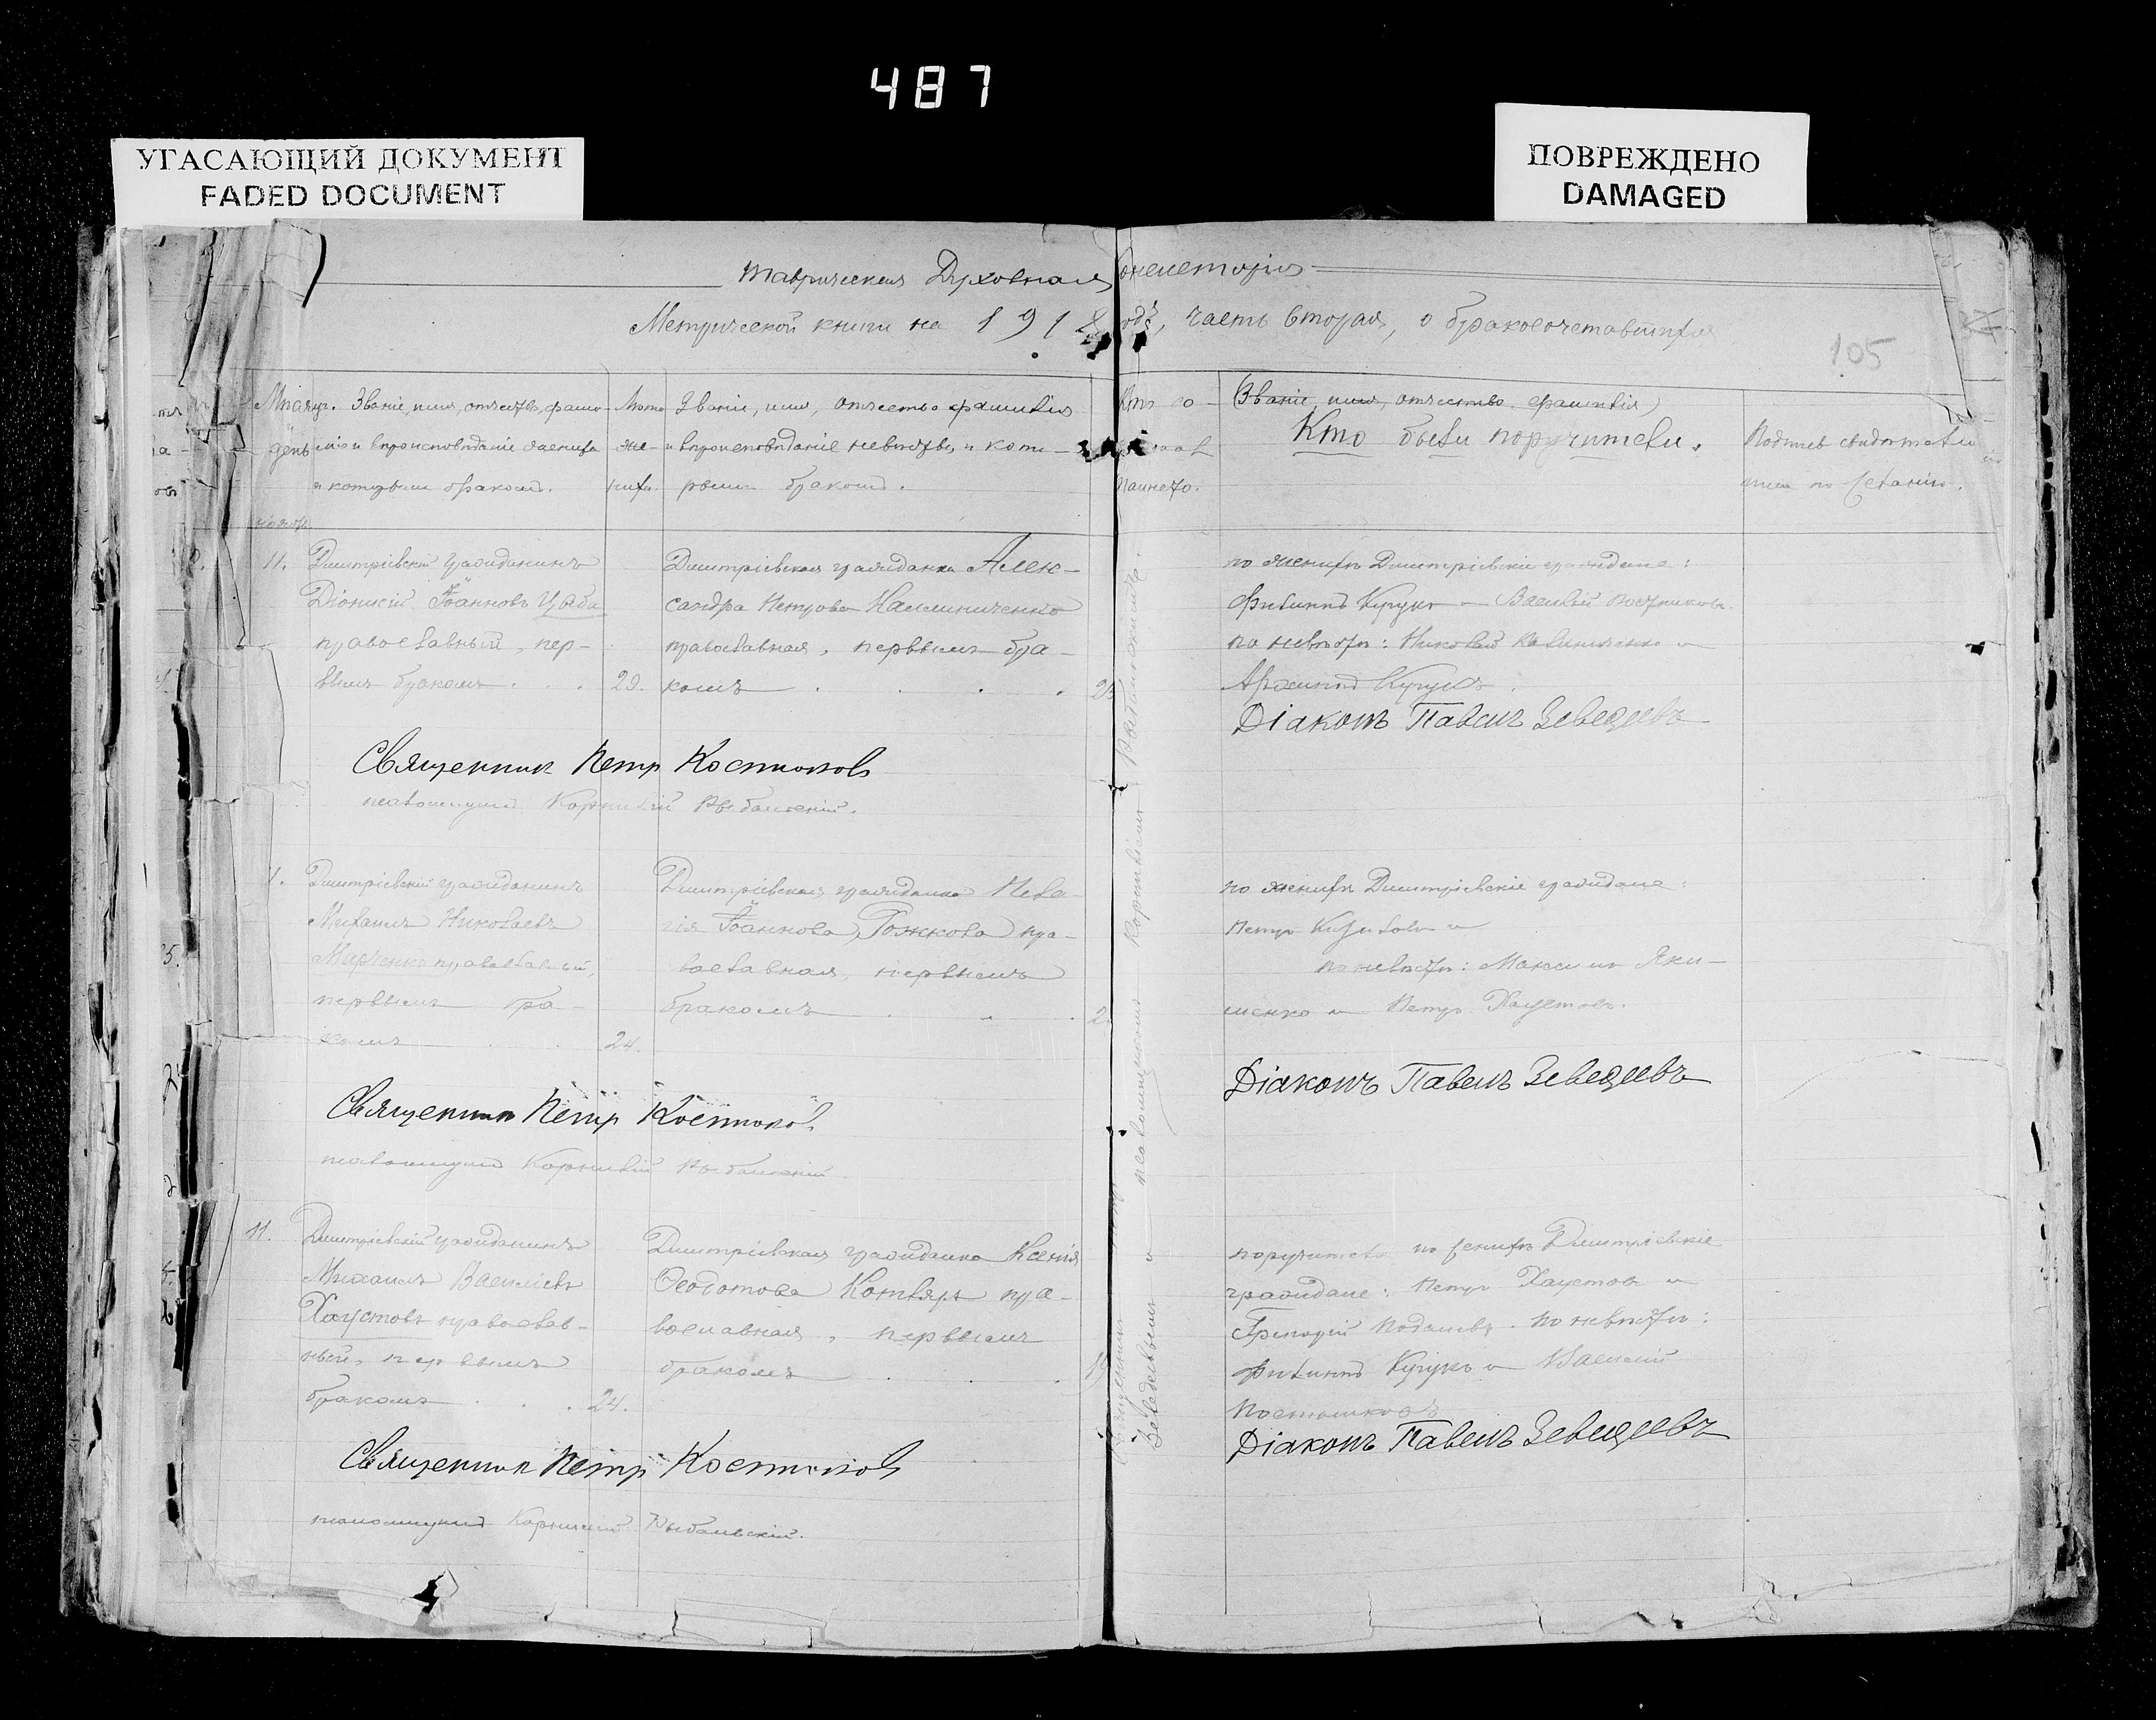 487
УГАСАЮЩИЙ ДОКУМЕНТ
FADED DOCUMENT
ПОВРЕЖДЕНО
DAMAGED
Таврическая Духовная Консисторія
Метрической книги на 1918 годъ, часть вторая, о бракосочетавшихся
105
Мѣсяцъ. Званіе, имя, отчество, фами-
день лія и вѣроисповѣданіе жениха
и которымъ бракомъ.
Лѣта
же-
ниха.
Званіе, имя, отчество фамилія
и вѣроисповѣданіе невѣсты, и кото-
рымъ бракомъ.
Кто со-
(Званіе, имя, отчество, фамилія)
Кто были поручители.
Подпись свидѣтелей
по желанію.
11. Димитріевскій гражданинъ
Діонисій Іоанновъ Цаба
православный, пер-
вымъ бракомъ . . . 29.
Димитріевская гражданка Алек-
сандра Петрова Калиниченко
православная, первымъ бра-
комъ . . . .
по женихѣ Димитріевскіе граждане:
Филиппъ Кучукъ и Василій Постниковъ.
по невѣстѣ: Николай Калиниченко и
Архиппъ Кучукъ.
Діаконъ Павелъ Зеведеевъ
Священник Петр Костюков
псаломщикъ Корнилій Рыбальскій.
Димитріевскій гражданинъ
Михаилъ Николаевъ
Марченко православный,
первымъ бра-
комъ . . 24.
Димитріевская гражданка Пела-
гія Іоаннова Рожкова пра-
вославная, первымъ
бракомъ . . .
по женихѣ Димитріевскіе граждане:
Петръ и
по невѣстѣ: Максимъ Яки-
менко и Петръ Хаустовъ.
Діаконъ Павелъ Зеведеевъ
Священник Петр Костюков
псаломщикъ Корнилій Рыбальскій
11. Димитріевскій гражданинъ
Михаилъ Васильевъ
Хаустовъ православ-
ный, первымъ
бракомъ . . . 24.
Димитріевская гражданка Ксенія
Ѳеодотова Котляръ пра-
вославная, первымъ
бракомъ . . . 19
поручители по женихѣ Димитріевскіе
граждане: Петръ Хаустовъ и
Григорій . по невѣстѣ:
Филиппъ Кучукъ и Василій
Постниковъ
Діаконъ Павелъ Зеведеевъ
Священник Петр Костюков
псаломщикъ Корнилій Рыбальскій.
Зеведеевымъ и псаломщикомъ Корниліемъ Рыбальскимъ.